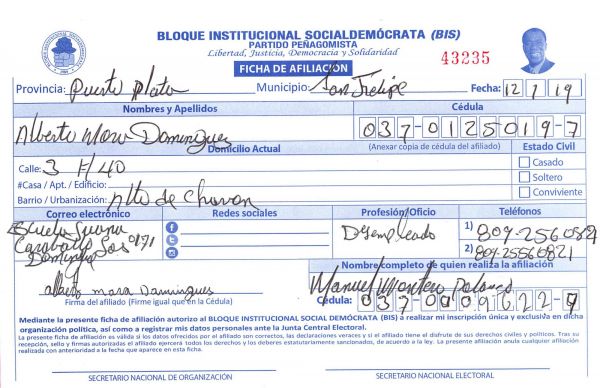 BLOQUE INSTITUCIONAL SOCIALDEMÓCRATA (BIS)
PARTIDO PEÑAGOMISTA
Libertad, Justicia, Democracia y Solidaridad
43235
FICHA DE AFILIACIÓN
Provincia: Puerto Plata Municipio: San Felipe Fecha: 12/1/19
Nombres y Apellidos Cédula
Alberto Mora Dominguez 037-0125019-7
Domicilio Actual (Anexar copia de cédula del afiliado) Estado Civil
Calle: 3 # 40 Casado
#Casa / Apt. / Edificio: Soltero
Barrio / Urbanización: Alto de Chavon Conviviente
Correo electrónico Redes sociales Profesión/Oficio Teléfonos
Escuela Juana
Carabalo 0171
Dominguez
Desempleado
1) 809-256082
2) 809-2560821
Nombre completo de quien realiza la afiliación
Manuel Montero
alberto mora Daminguez
Firma del afiliado (Firme igual que en la Cédula) Cédula: 037-0009622-9
Mediante la presente ficha de afiliación autorizo al BLOQUE INSTITUCIONAL SOCIAL DEMÓCRATA (BIS) a realizar mi inscripción única y exclusiva en dicha
organización política, así como a registrar mis datos personales ante la Junta Central Electoral.
La presente ficha de afiliación es válida si los datos ofrecidos por el afiliado son correctos, las declaraciones veraces y si el afiliado tiene el disfrute de sus derechos civiles y políticos. Tras su
recepción, sello y firmas autorizadas el afiliado ejercerá todos los derechos y los deberes estatutariamente sancionados, de acuerdo a la ley. La presente afiliación anula cualquier afiliación
realizada con anterioridad a la fecha que aparece en esta ficha.
SECRETARIO NACIONAL DE ORGANIZACIÓN SECRETARIO NACIONAL ELECTORAL